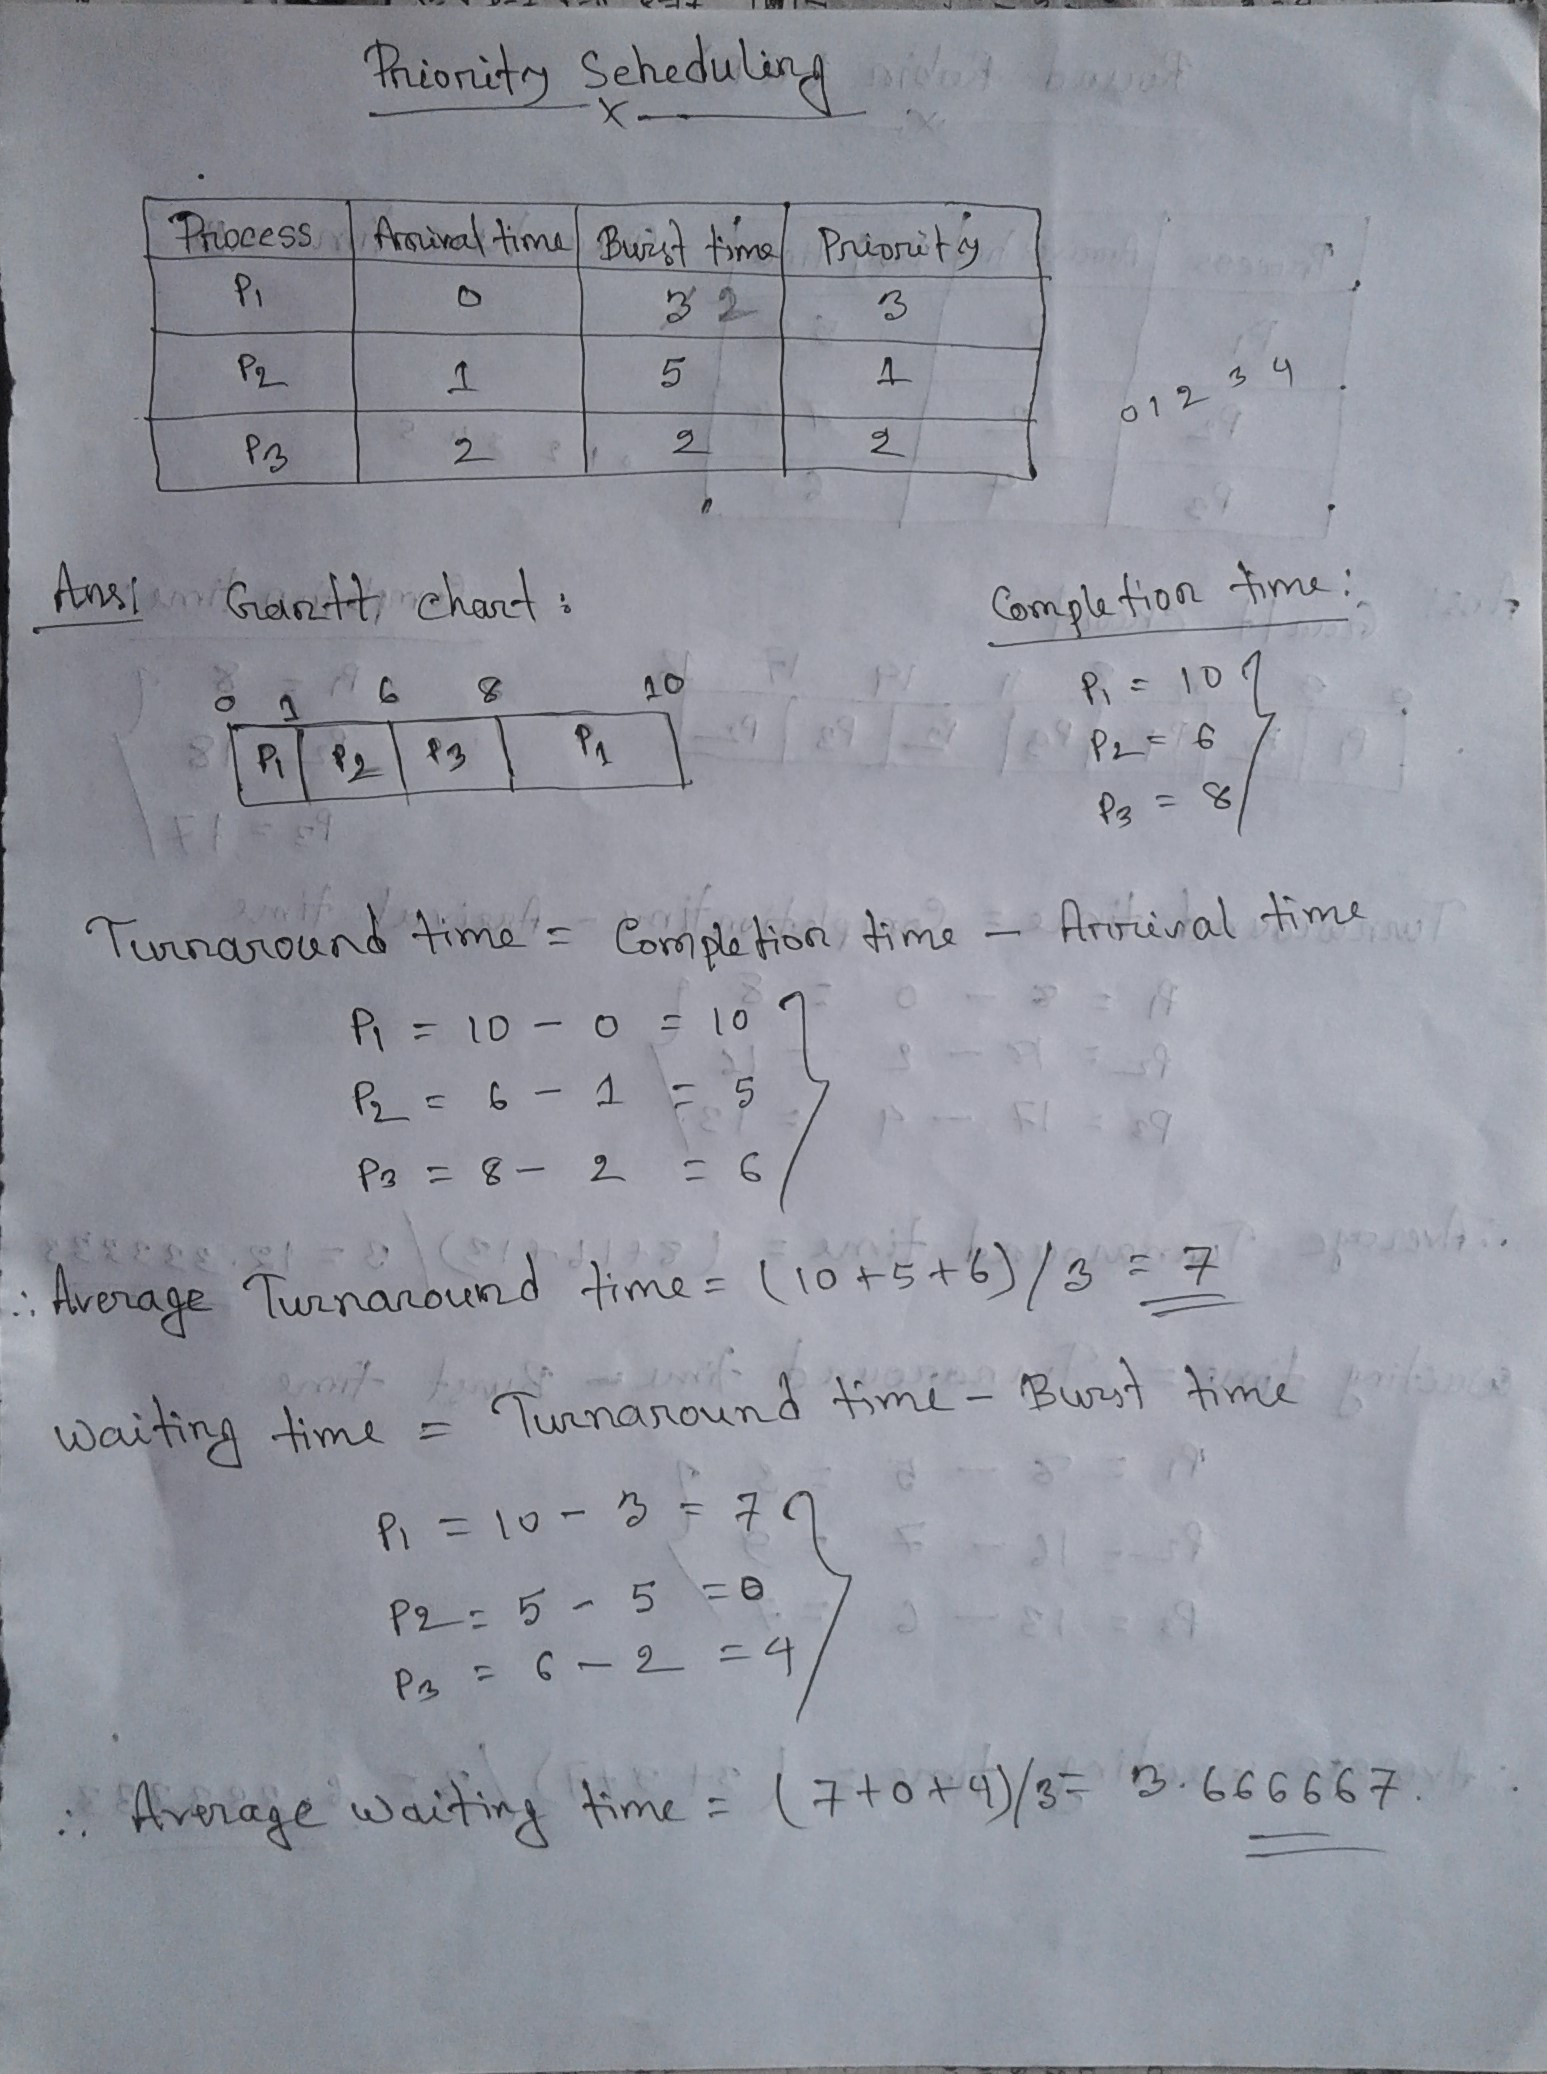 Priority Scheduling
x
Process Arrival time Burst time Priority
P1 0 3 2 3
P2 1 5 1
P3 2 2 2
0 1 2 3 4
Ans: Gantt chart: Completion time:
0 1 6 8 10
P1 P2 P3 P1
P1 = 10
P2 = 6
P3 = 8
Turnaround time = Completion time - Arrival time
P1 = 10 - 0 = 10
P2 = 6 - 1 = 5
P3 = 8 - 2 = 6
∴ Average Turnaround time = (10+5+6)/3 = 7
Waiting time = Turnaround time - Burst time
P1 = 10 - 3 = 7
P2 = 5 - 5 = 0
P3 = 6 - 2 = 4
∴ Average waiting time = (7+0+4)/3 = 3.666667.